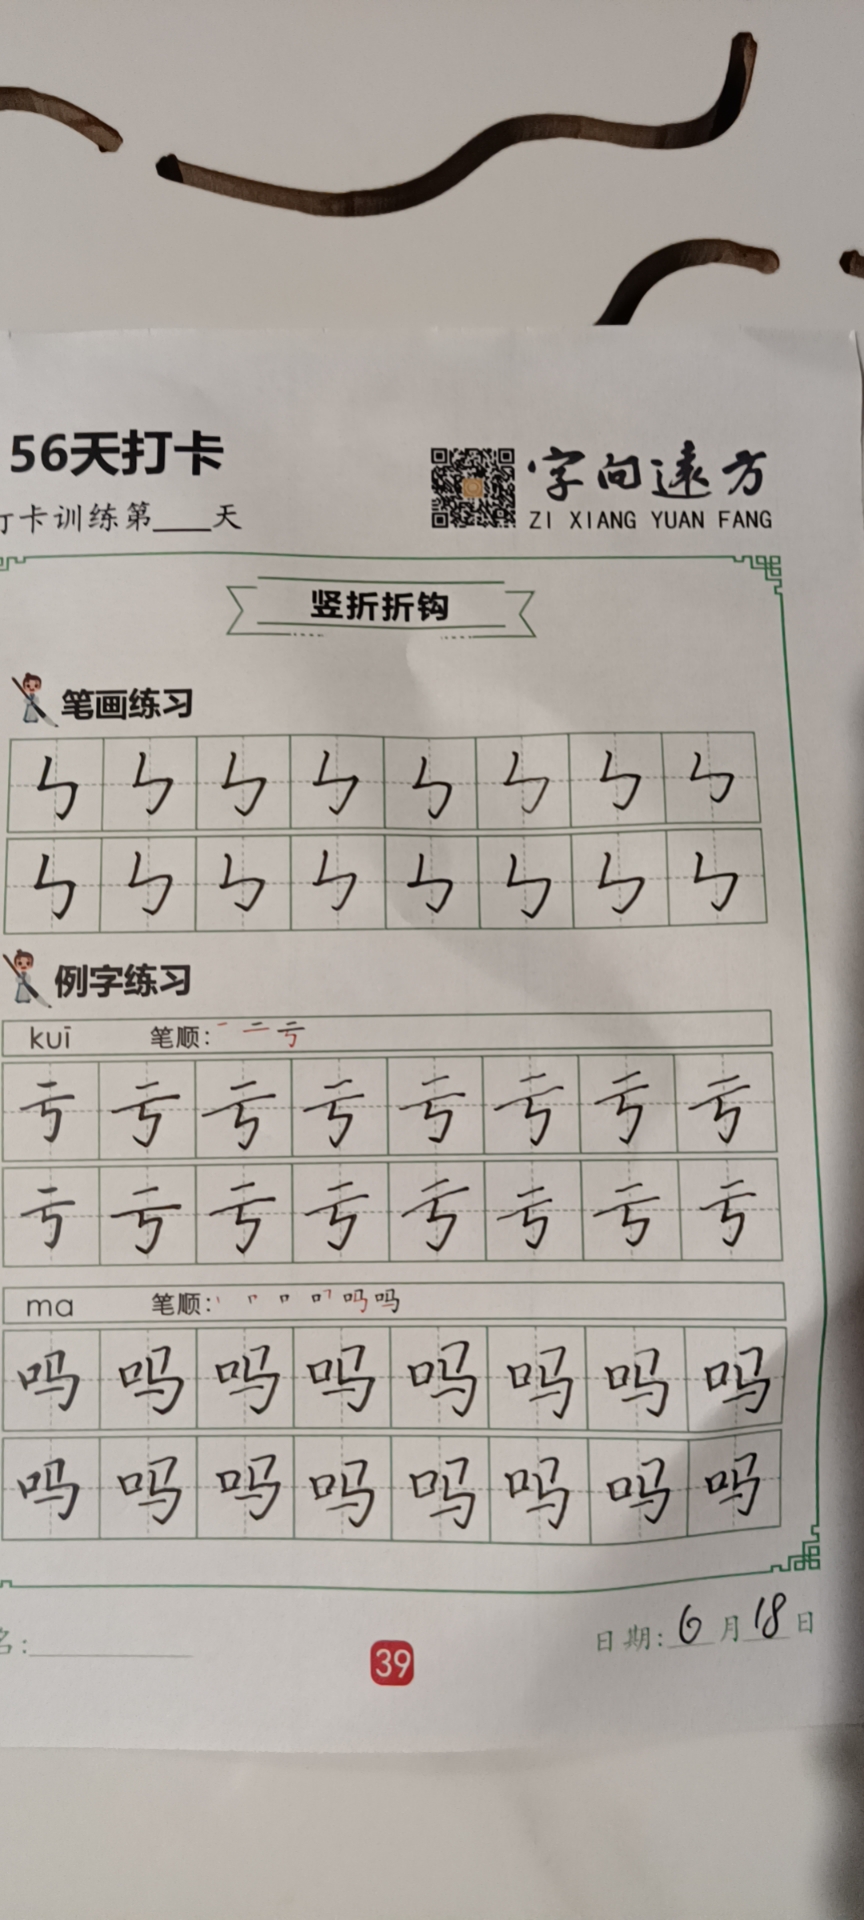 56天打卡
打卡训练第____天
字向远方
ZI XIANG YUAN FANG
竖折折钩
笔画练习
㇉ ㇉ ㇉ ㇉ ㇉ ㇉ ㇉ ㇉
㇉ ㇉ ㇉ ㇉ ㇉ ㇉ ㇉ ㇉
例字练习
kuī 笔顺: 一 二 亏
亏 亏 亏 亏 亏 亏 亏 亏
亏 亏 亏 亏 亏 亏 亏 亏
ma 笔顺: 吗 吗
吗 吗 吗 吗 吗 吗 吗 吗
吗 吗 吗 吗 吗 吗 吗 吗
名:________
39
日期: 6 月 18 日